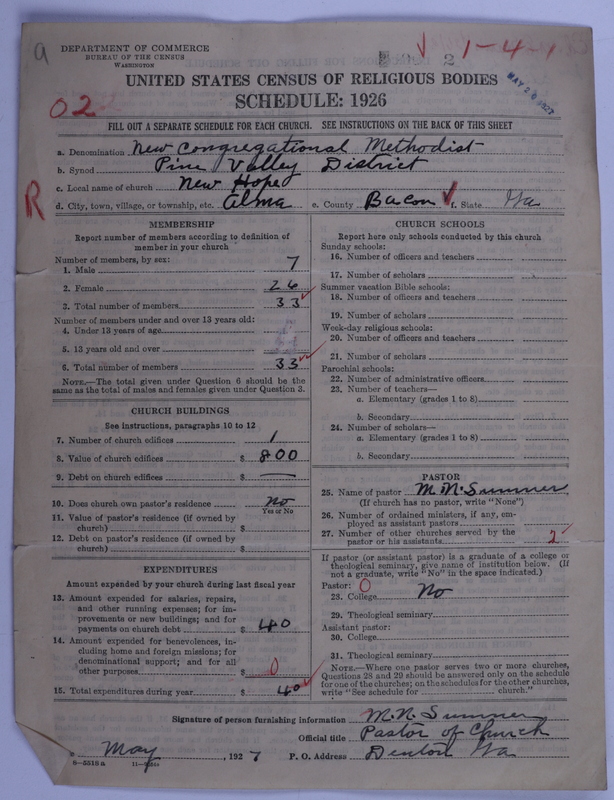 a
DEPARTMENT OF COMMERCE
BUREAU OF THE CENSUS
WASHINGTON
2
1-4-1
MAY 20 1927
UNITED STATES CENSUS OF RELIGIOUS BODIES
SCHEDULE: 1926
02
FILL OUT A SEPARATE SCHEDULE FOR EACH CHURCH. SEE INSTRUCTIONS ON THE BACK OF THIS SHEET
a. Denomination New Congregational Methodist
b. Synod Pine Valley District
c. Local name of church New Hope
R
d. City, town, village, or township, etc. Alma e. County Bacon f. State Ga
MEMBERSHIP
Report number of members according to definition of
member in your church
Number of members, by sex:
1. Male 7
2. Female 26
3. Total number of members 33
Number of members under and over 13 years old:
4. Under 13 years of age
5. 13 years old and over
6. Total number of members 33
NOTE.—The total given under Question 6 should be the
same as the total of males and females given under Question 3.
CHURCH BUILDINGS
See instructions, paragraphs 10 to 12
7. Number of church edifices 1
8. Value of church edifices $ 800
9. Debt on church edifices $ —
10. Does church own pastor's residence No
Yes or No
11. Value of pastor's residence (if owned by
church) $
12. Debt on pastor's residence (if owned by
church) $
EXPENDITURES
Amount expended by your church during last fiscal year
13. Amount expended for salaries, repairs,
and other running expenses; for im-
provements or new buildings; and for
payments on church debt $ 40
14. Amount expended for benevolences, in-
cluding home and foreign missions; for
denominational support; and for all
other purposes $ 0
15. Total expenditures during year $ 40
CHURCH SCHOOLS
Report here only schools conducted by this church
Sunday schools:
16. Number of officers and teachers
17. Number of scholars
Summer vacation Bible schools:
18. Number of officers and teachers
19. Number of scholars
Week-day religious schools:
20. Number of officers and teachers
21. Number of scholars
Parochial schools:
22. Number of administrative officers
23. Number of teachers—
a. Elementary (grades 1 to 8)
b. Secondary
24. Number of scholars—
a. Elementary (grades 1 to 8)
b. Secondary
PASTOR
25. Name of pastor M. N. Summer
(If church has no pastor, write "None")
26. Number of ordained ministers, if any, em-
ployed as assistant pastors
27. Number of other churches served by the
pastor or his assistants 2
If pastor (or assistant pastor) is a graduate of a college or
theological seminary, give name of institution below. (If
not a graduate, write "No" in the space indicated.)
Pastor: 0
28. College No
29. Theological seminary
Assistant pastor:
30. College
31. Theological seminary
NOTE.—Where one pastor serves two or more churches,
Questions 28 and 29 should be answered only on the schedule
for one of the churches; on the schedules for the other churches,
write "See schedule for church."
Signature of person furnishing information M. N. Summer
Official title Pastor of Church
May, 1927 P. O. Address Denton Ga
8—5518 a